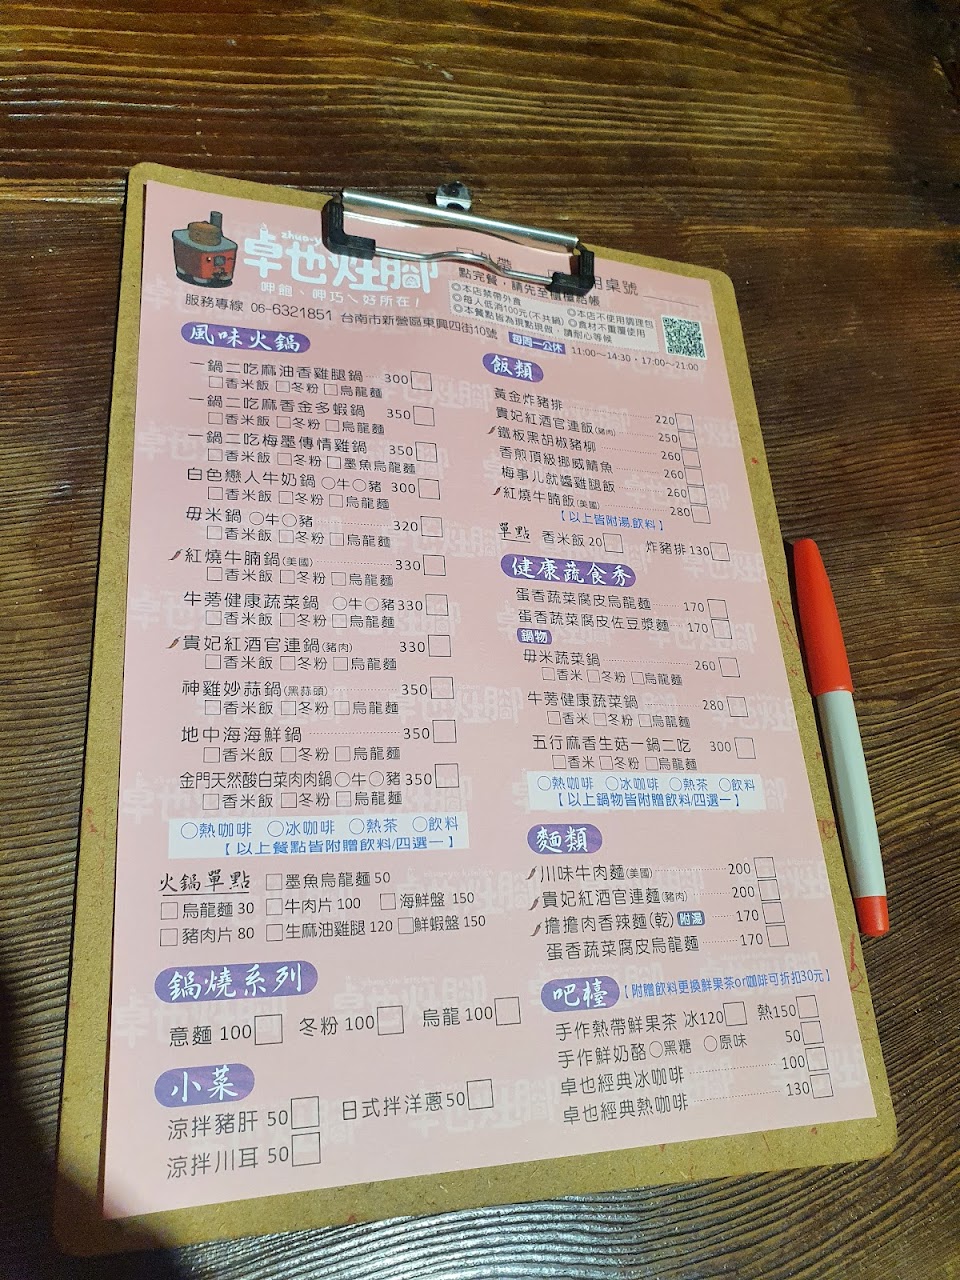 zhuo-y
卓也灶腳
呷飽、呷巧ㄟ好所在！
服務專線 06-6321851 台南市新營區東興四街10號
桌號
點完餐，請先至櫃檯結帳
◎本店禁帶外食 ◎本店不使用調理包
◎每人低消100元(不共鍋) ◎食材不重覆使用
◎本餐點皆為現點現做，請耐心等候
每周一公休 11:00~14:30，17:00~21:00
風味火鍋
一鍋二吃麻油香雞腿鍋 300□
□香米飯 □冬粉 □烏龍麵
一鍋二吃麻香金多蝦鍋 350□
□香米飯 □冬粉 □烏龍麵
一鍋二吃梅墨傳情雞鍋 350□
□香米飯 □冬粉 □墨魚烏龍麵
白色戀人牛奶鍋 ○牛○豬 300□
□香米飯 □冬粉 □烏龍麵
毋米鍋 ○牛○豬 320□
□香米飯 □冬粉 □烏龍麵
紅燒牛腩鍋(美國) 330□
□香米飯 □冬粉 □烏龍麵
牛蒡健康蔬菜鍋 ○牛○豬330□
□香米飯 □冬粉 □烏龍麵
貴妃紅酒官連鍋(豬肉) 330□
□香米飯 □冬粉 □烏龍麵
神雞妙蒜鍋(黑蒜頭) 350□
□香米飯 □冬粉 □烏龍麵
地中海海鮮鍋 350□
□香米飯 □冬粉 □烏龍麵
金門天然酸白菜肉肉鍋○牛○豬350□
□香米飯 □冬粉 □烏龍麵
○熱咖啡 ○冰咖啡 ○熱茶 ○飲料
【以上餐點皆附贈飲料/四選一】
火鍋單點 □墨魚烏龍麵 50
□烏龍麵 30 □牛肉片 100 □海鮮盤 150
□豬肉片 80 □生麻油雞腿 120 □鮮蝦盤 150
鍋燒系列
意麵 100□ 冬粉 100□ 烏龍 100□
小菜
涼拌豬肝 50□ 日式拌洋蔥50□
涼拌川耳 50□
飯類
黃金炸豬排 220□
貴妃紅酒官連飯(豬肉) 250□
鐵板黑胡椒豬柳 260□
香煎頂級挪威鯖魚 260□
梅事儿就醬雞腿飯 260□
紅燒牛腩飯(美國) 280□
【以上皆附湯.飲料】
單點 香米飯 20□ 炸豬排 130□
健康蔬食秀
蛋香蔬菜腐皮烏龍麵 170□
蛋香蔬菜腐皮佐豆漿麵 170□
鍋物
毋米蔬菜鍋 260□
□香米 □冬粉 □烏龍麵
牛蒡健康蔬菜鍋 280□
□香米 □冬粉 □烏龍麵
五行麻香生菇一鍋二吃 300□
□香米 □冬粉 □烏龍麵
○熱咖啡 ○冰咖啡 ○熱茶 ○飲料
【以上鍋物皆附贈飲料/四選一】
麵類
川味牛肉麵(美國) 200□
貴妃紅酒官連麵(豬肉) 200□
擔擔肉香辣麵(乾) 附湯 170□
蛋香蔬菜腐皮烏龍麵 170□
吧檯【附贈飲料更換鮮果茶or咖啡可折扣30元】
手作熱帶鮮果茶 冰120□ 熱150□
手作鮮奶酪○黑糖 ○原味 50□
卓也經典冰咖啡 100□
卓也經典熱咖啡 130□